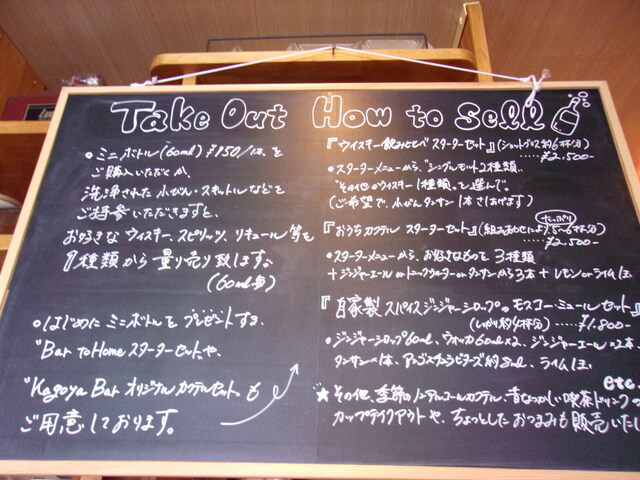 Take Out How to sell
・ミニボトル(60ml)¥150/1本、を
ご購入いただくか、
洗浄された小びん・スキットルなどを
ご持参いただきますと、
お好きなウイスキー、スピリッツ、リキュール等を
1種類から量り売り致します。
(60ml毎)
・はじめにミニボトルをプレゼントする、
"Bar to Home スターターセット"や、
"Kagoya Bar オリジナルカクテルセット"も
ご用意しております。
『ウイスキー飲みくらべ スターターセット』(ショットグラス約6杯分)
.....¥2,500-
・スターターメニューから、"シングルモルト2種類"、
"その他のウイスキー1種類"、を選んで。
(ご希望で、小びんタンサン1本さしあげます)
たっぷり
『おうちカクテル スターターセット』(組み合わせにより、5〜6杯分)
.....¥2,500-
・スターターメニューから、お好きなものを3種類
+ジンジャーエール or トニックウォーター or タンサンから3本 + レモン or ライム1コ
『自家製 スパイスジンジャーシロップのモスコー・ミュールセット』
(しっかり約4杯分) .....¥1,900-
・ジンジャーシロップ60ml、ウォッカ60ml×2、ジンジャーエール×2本、
タンサン×1本、アンゴスチュラビターズ約8ml、ライム1コ
etc
★その他、季節のノンアルコールカクテル、昔なつかしい喫茶ドリンクの
カップテイクアウトや、ちょっとしたおつまみも販売いたし